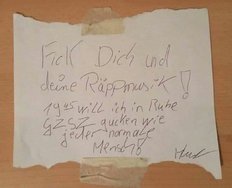 Fick Dich und
deine Räppmusik!
1945 will ich in Ruhe
GZSZ gucken wie
jeder normale
Mensch